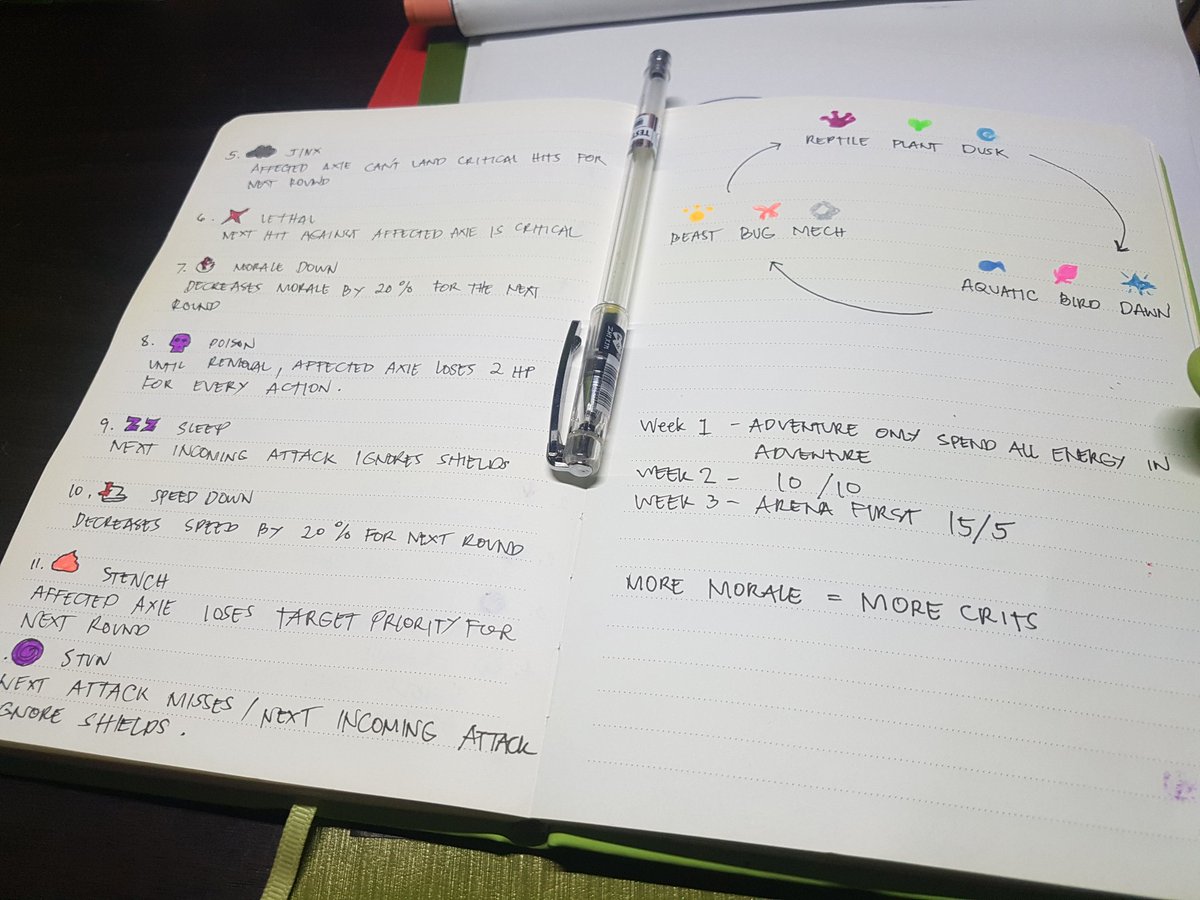 5. JINX
AFFECTED AXIE CAN'T LAND CRITICAL HITS FOR
NEXT ROUND
6. LETHAL
NEXT HIT AGAINST AFFECTED AXIE IS CRITICAL
7. MORALE DOWN
DECREASES MORALE BY 20% FOR THE NEXT
ROUND
8. POISON
UNTIL REMOVAL, AFFECTED AXIE LOSES 2 HP
FOR EVERY ACTION.
9. ZZ SLEEP
NEXT INCOMING ATTACK IGNORES SHIELDS
10. SPEED DOWN
DECREASES SPEED BY 20% FOR NEXT ROUND
11. STENCH
AFFECTED AXIE LOSES TARGET PRIORITY FOR
NEXT ROUND
. STUN
NEXT ATTACK MISSES / NEXT INCOMING ATTACK
IGNORE SHIELDS.
REPTILE PLANT DUSK
BEAST BUG MECH
AQUATIC BIRD DAWN
Week 1 - ADVENTURE ONLY SPEND ALL ENERGY IN
ADVENTURE
WEEK 2 - 10/10
WEEK 3 - ARENA FURST 15/5
MORE MORALE = MORE CRITS